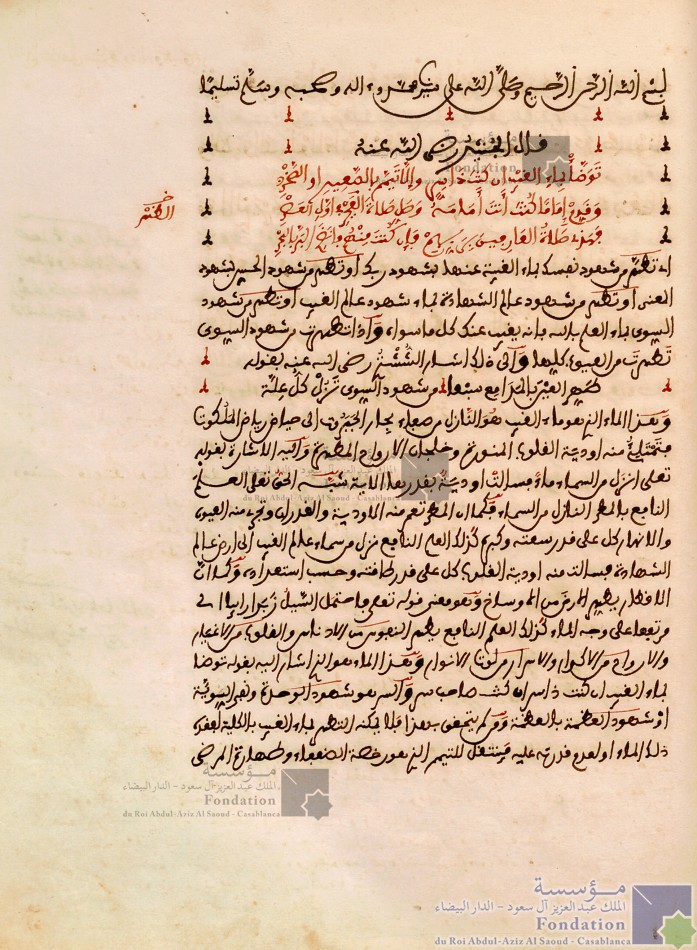 بسم الله الرحمن الرحيم وصلى الله على سيدنا محمد وءاله وصحبه وسلم تسليما
قال الجنيد رضي الله عنه
توضأ بماء الغيب إن كنت ذا سر وإلا تيمم بالصعيد أو الصخر
وقدم إماما كنت أنت أمامه وصل صلاة الفجر في أول العصر
فهذه صلاة العارفين بربهم فإن كنت منهم فانضح البر بالبحر
أي تطهر من شهود نفسك بماء الغيبة عنها بشهود ربك أو تطهر من شهود الحس بشهود
المعنى أو تطهر من شهود عالم الشهادة بماء شهود عالم الغيب أو تطهر من شهود
السوى بماء العلم بالله فإنه يغيب عنك كل ما سواه وإذا تطهرت من شهود السوى
تطهرت من العيوب كلها وإلى ذلك أشار الششتري رضي الله عنه بقوله
طهر العين بالمدامع سبعا من شهود السوى تزل كل علة
وهذا الماء الذي هو ماء الغيب هو النازل من صفاء بحار الجبروت إلى حياض رياض الملكوت
فتمتلئ منه أودية القلوب المنورة وخلجان الأرواح المطهرة وإليه الإشارة بقوله
تعلى أنزل من السماء ماء فسالت أودية بقدرها الآية شبه الحق تعلى العلم
النافع بالمطر النازل من السماء فكما أن المطر تعمر منه الأودية والغدران وتجري منه العيون
والأنهار كل على قدر سعته وكبره كذلك العلم النافع نزل من سماء عالم الغيب إلى أرض عالم
الشهادة فسالت منه أودية القلوب كل على قدر طاقته وحسب استعداده وكما أن
الأمطار يطهر الأرض من الأوساخ وهو معنى قوله تعلى فاحتمل السيل زبدا رابيا أي
مرتفعا على وجه الماء كذلك العلم النافع يطهر النفوس من الأدناس والقلوب من الأغيار
والأرواح من الأكدار والأسرار من لوث الأنوار وهذا الماء هو الذي أشار إليه بقوله توضا
بماء الغيب إن كنت ذا سر أي إن كنت صاحب سر والسر هو شهود الوحدة ونفي السوى
أو شهود العظمة بالعظمة ومن لم يتحقق بهذا فلا يمكنه التطهر بماء الغيب بالكلية لفقد
ذلك الماء أو لعدم قدرته عليه فينتقل للتيمم الذي هو رخصة الضعفاء وطهارة المرضى
مؤسسة
الملك عبد العزيز آل سعود - الدار البيضاء
Fondation
du Roi Abdul-Aziz Al Saoud - Casablanca
مؤسسة
الملك عبد العزيز آل سعود - الدار البيضاء
Fondation
du Roi Abdul-Aziz Al Saoud - Casablanca